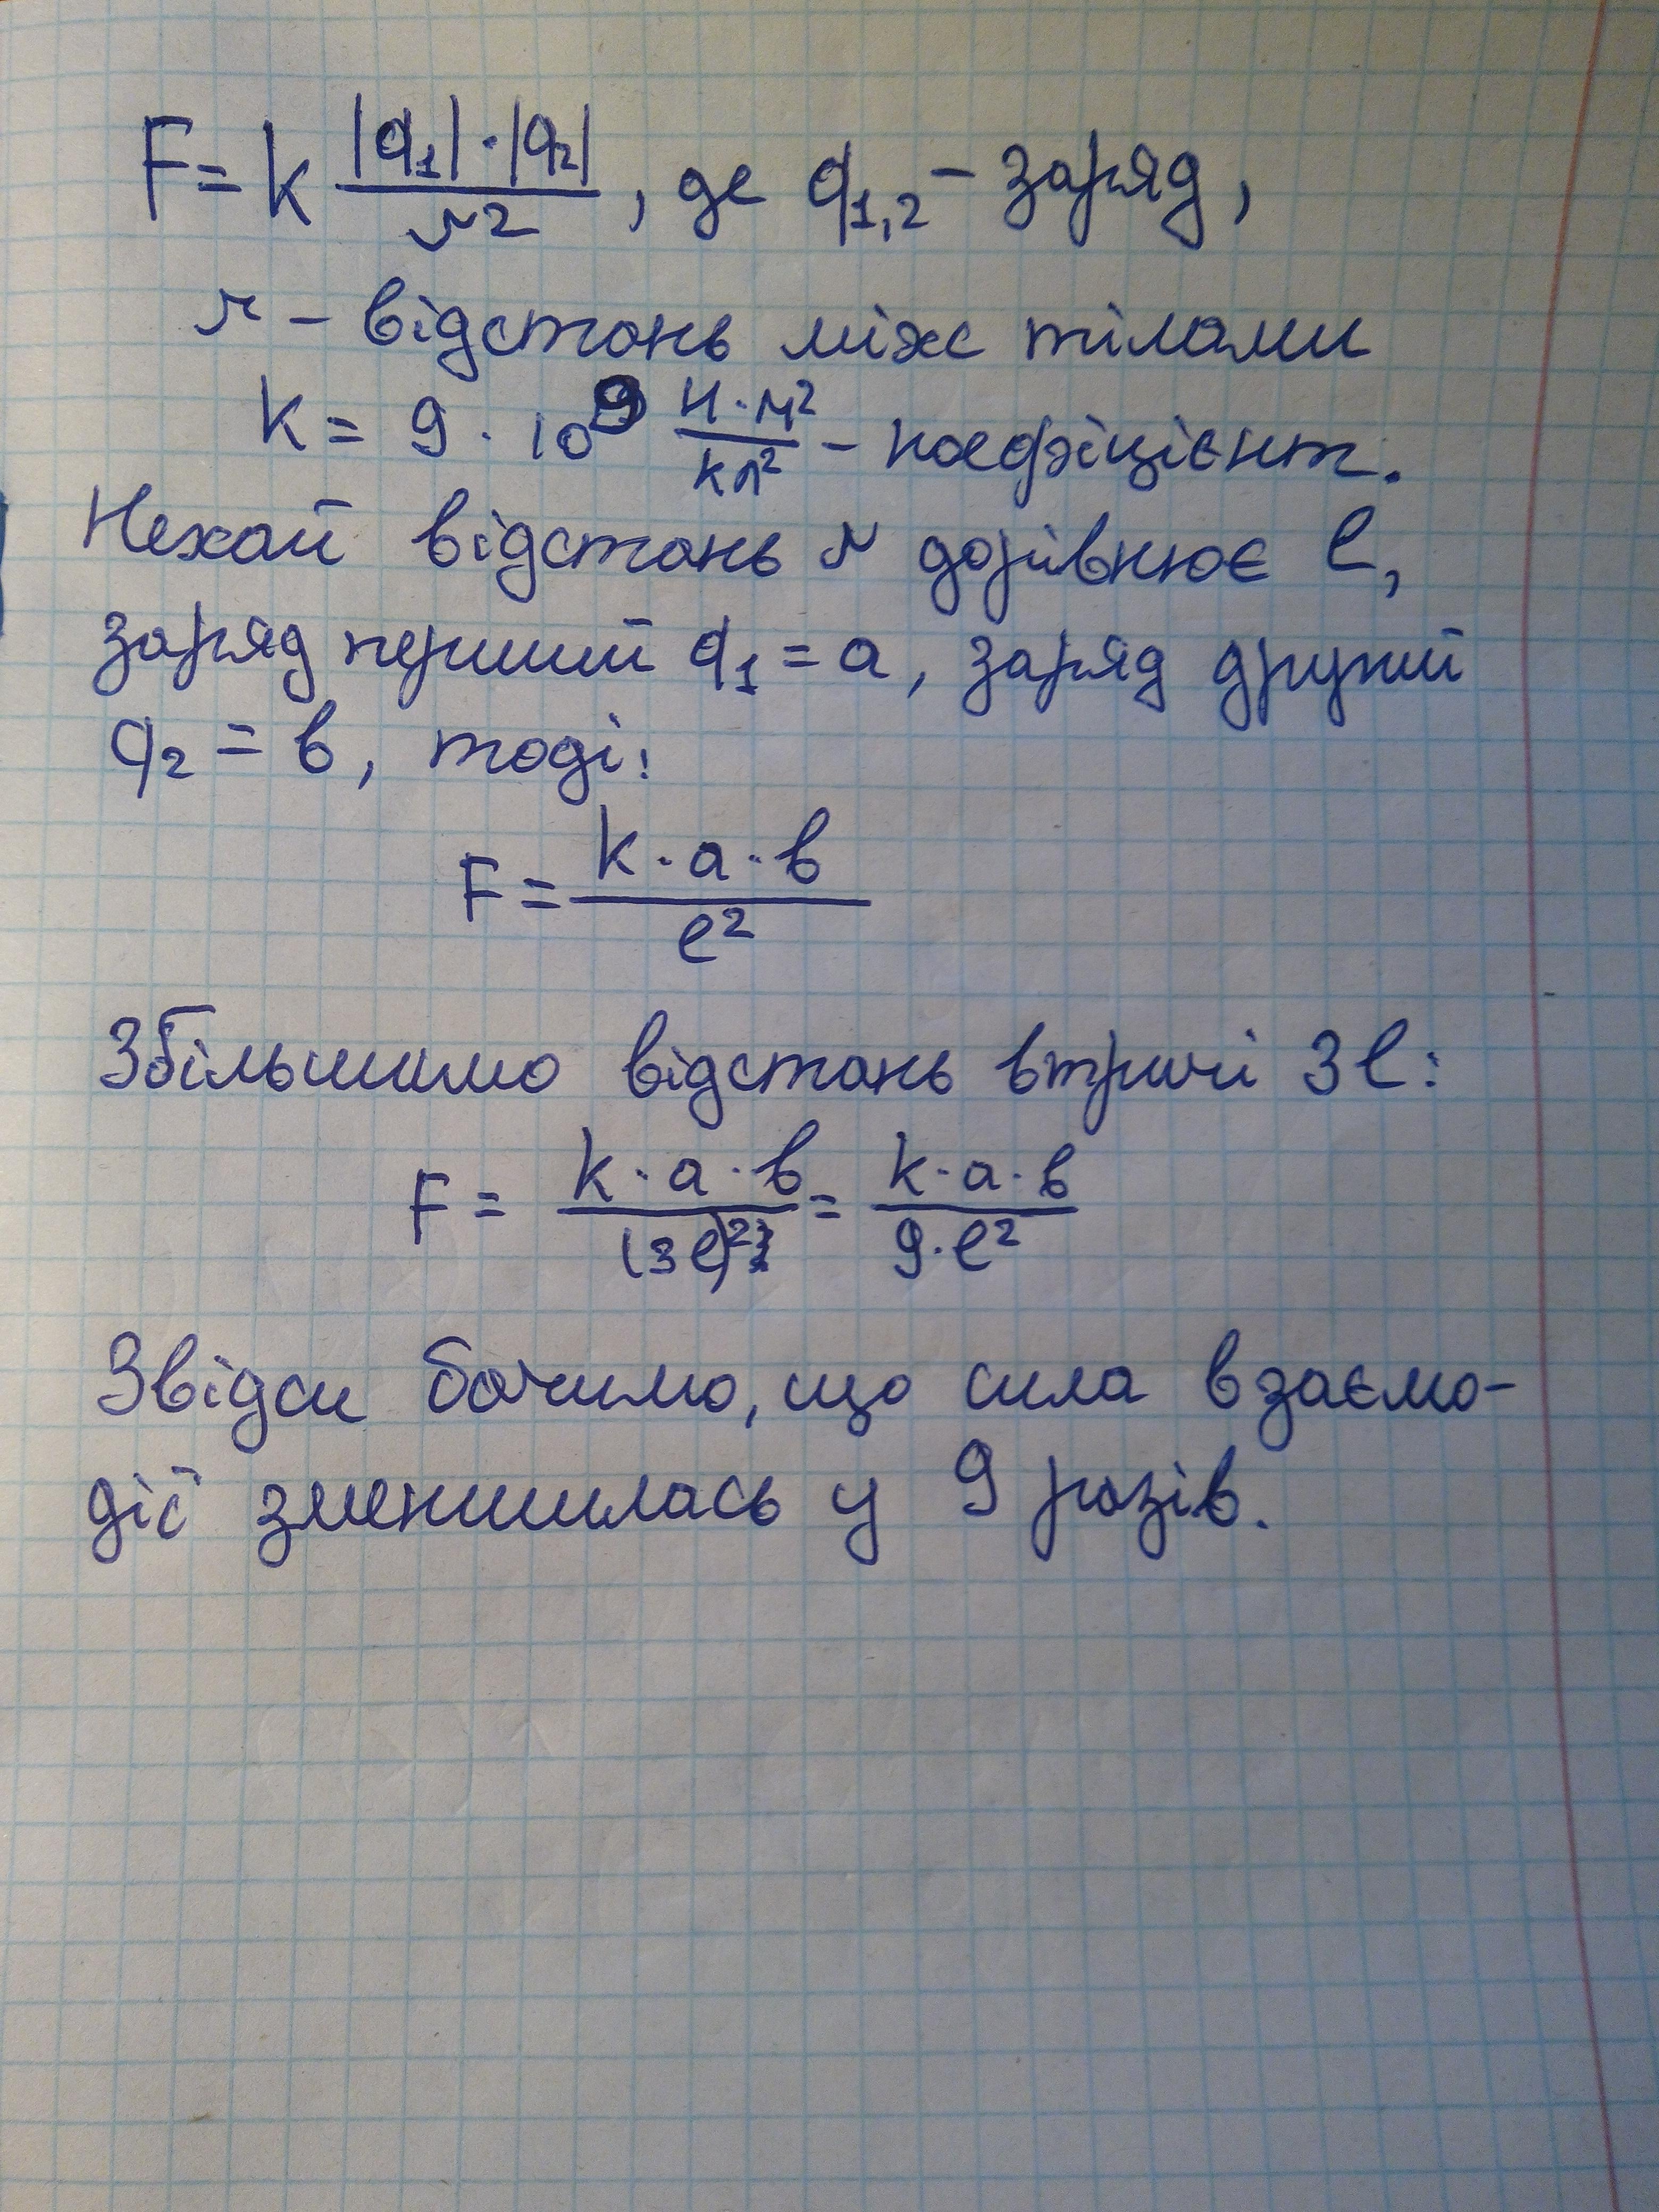 F = k |q₁|·|q₂| / r², де q₁,₂ – заряд,
r – відстань між тілами
k = 9 · 10⁹ Н·м²/кл² – коефіцієнт.
Нехай відстань r дорівнює l,
заряд перший q₁ = a, заряд другий
q₂ = в, тоді:
F = k·a·в / l²
Збільшимо відстань втричі 3l:
F = k·a·в / (3l)² = k·a·в / 9·l²
Звідси бачимо, що сила взаємо-
дії зменшилась у 9 разів.